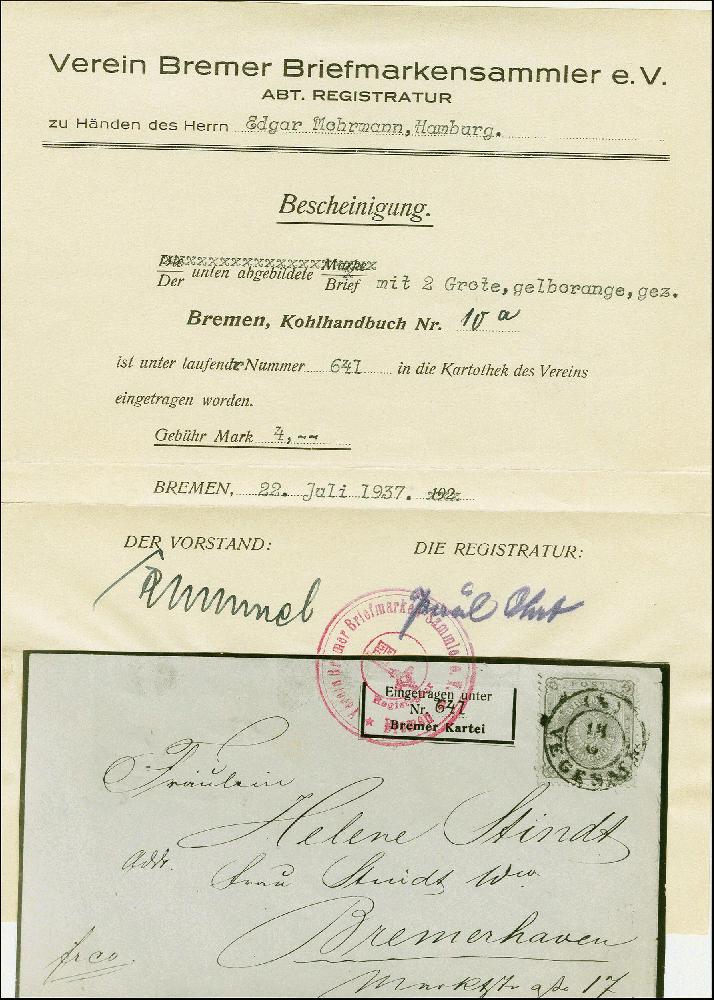 Verein Bremer Briefmarkensammler e.V.
ABT. REGISTRATUR
zu Händen des Herrn Edgar Mohrmann, Hamburg.
Bescheinigung.
Die Marke
Der unten abgebildete Brief mit 2 Grote, gelborange, gez.
Bremen, Kohlhandbuch Nr. 10 a
ist unter laufender Nummer 641 in die Kartothek des Vereins
eingetragen worden.
Gebühr Mark 4,--
BREMEN, 22. Juli 1937. 192
DER VORSTAND: DIE REGISTRATUR:
Verein Bremer Briefmarkensammler e.V.
Bremen
Eingetragen unter
Nr. 641
Bremer Kartei
POST
VEGESACK
Fräulein
Helene Stindt
Adr. Frau Stindt Ww.
Bremerhaven
frco
17